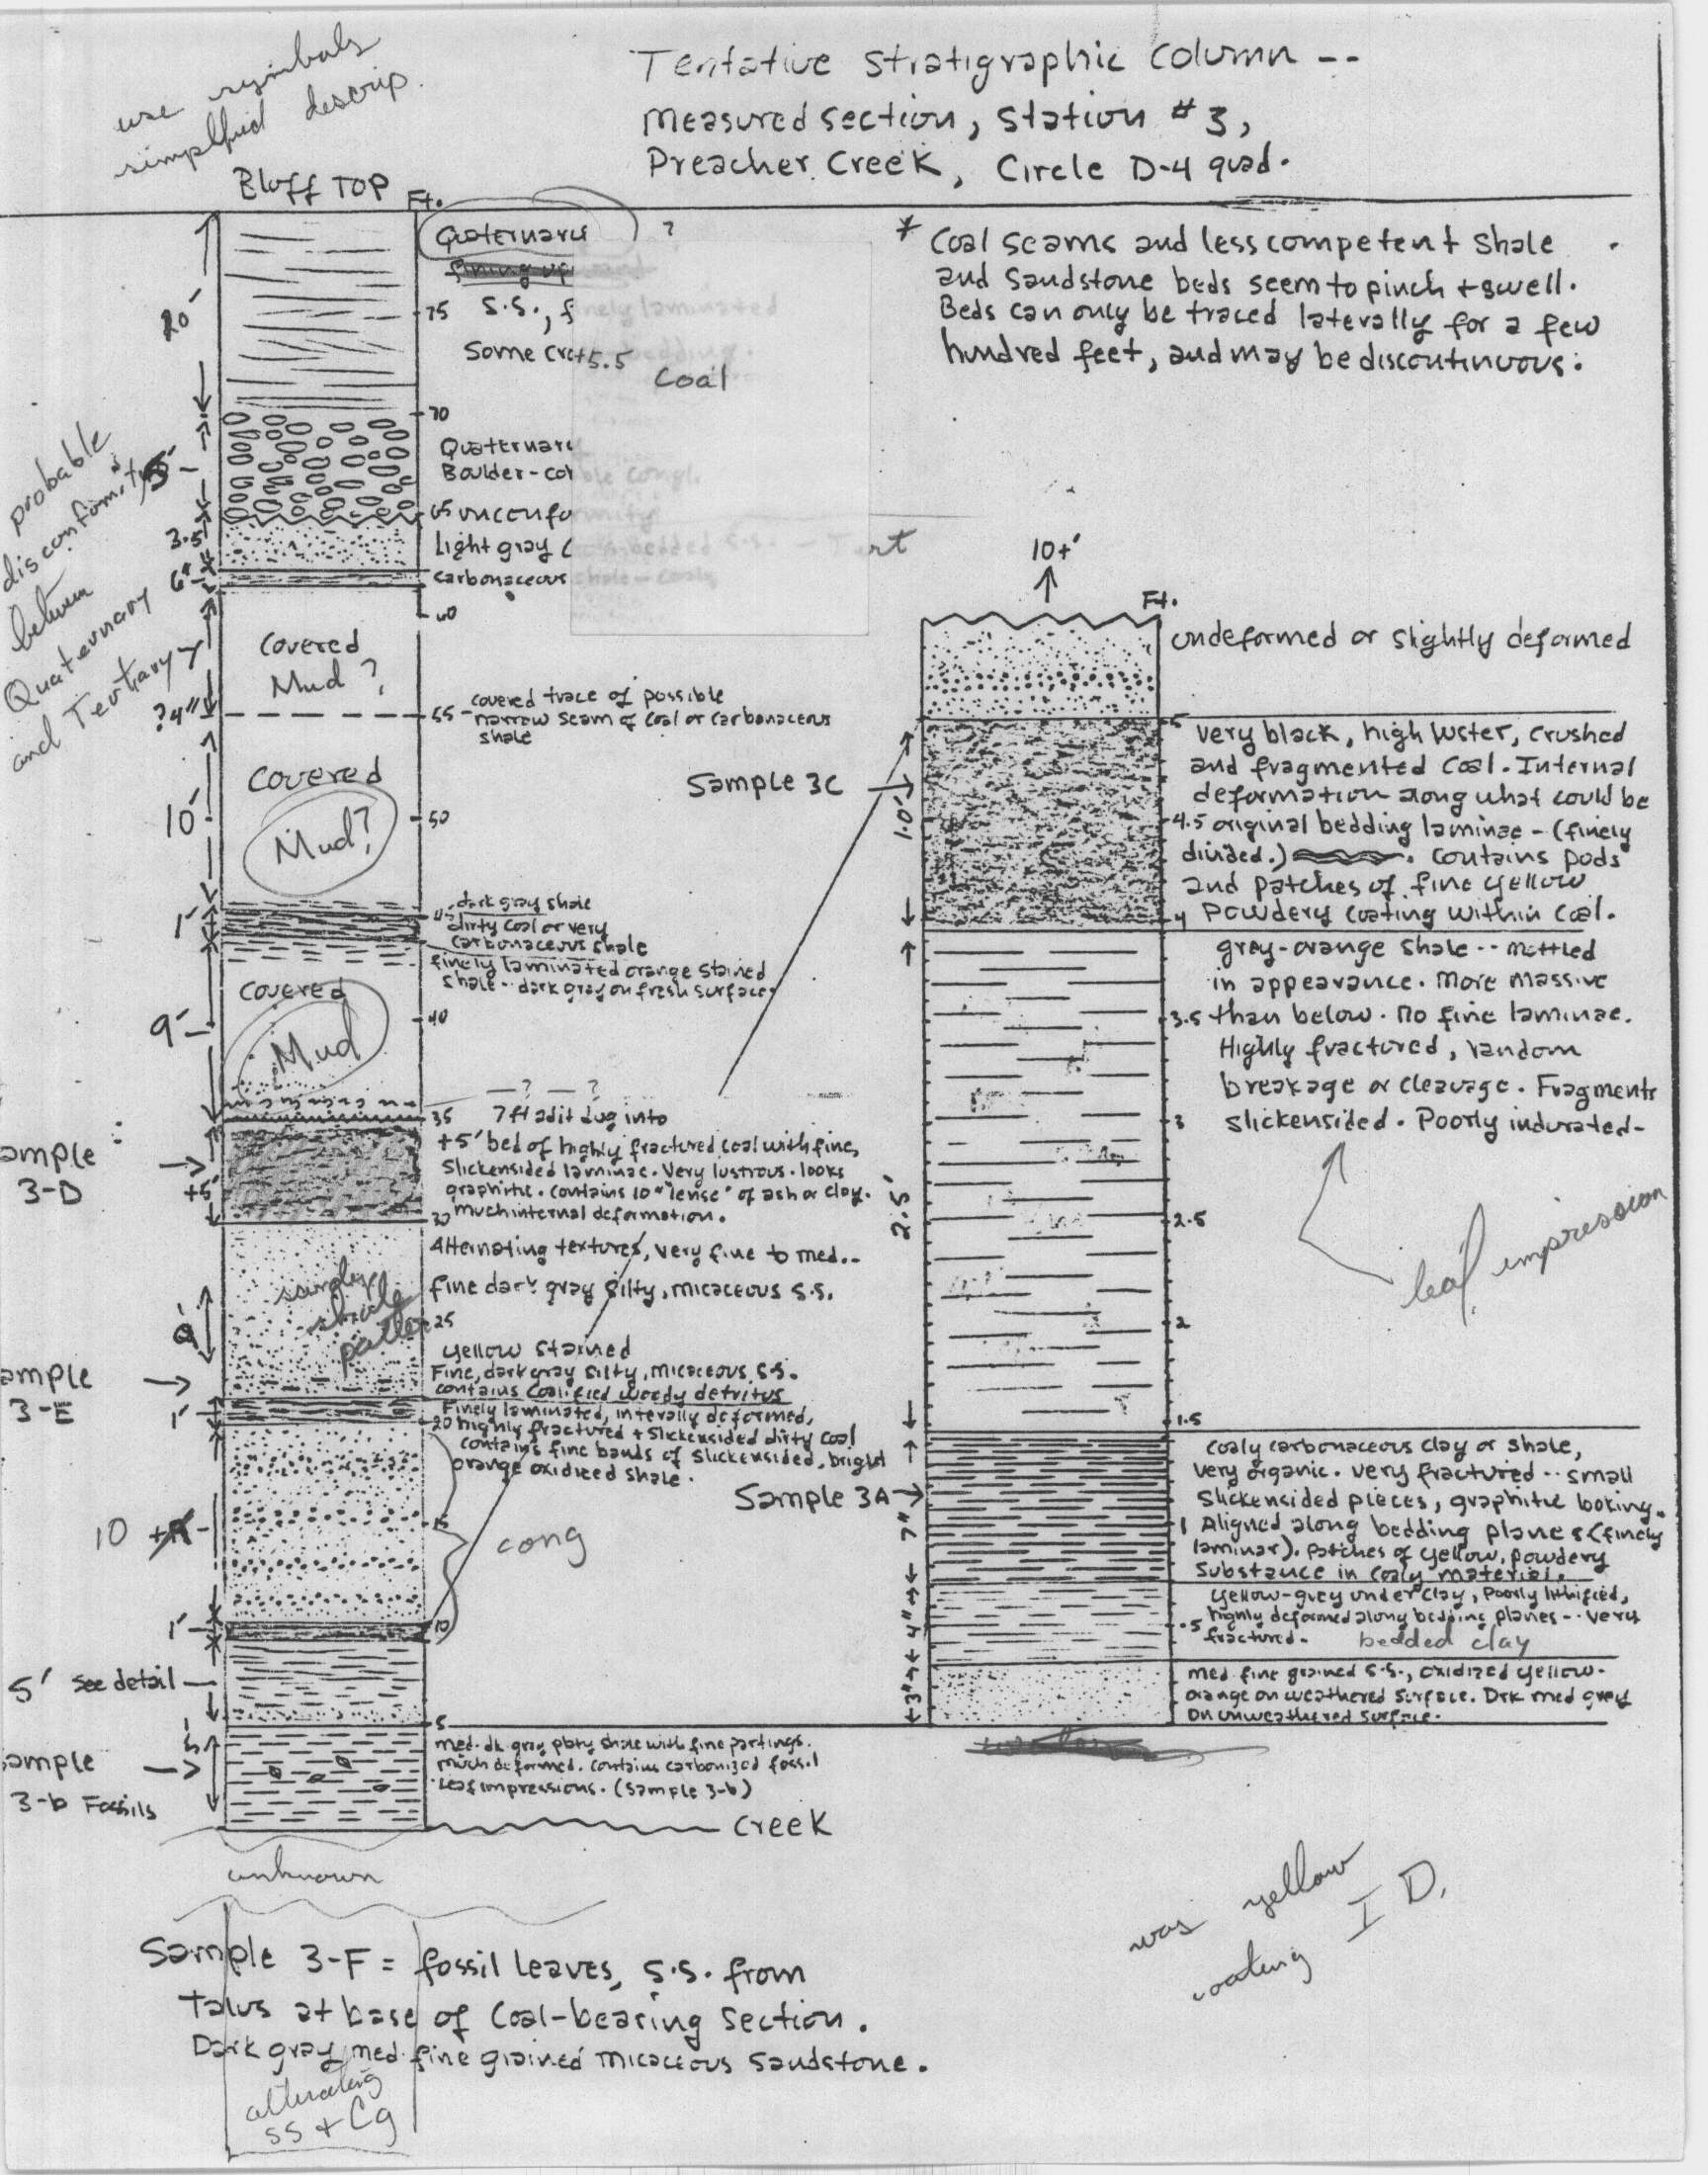 use symbols
simplfied descrip.
Tentative stratigraphic column --
Measured section, Station #3,
Preacher Creek, Circle D-4 quad.
Bluff TOP
Ft.
Quaternary
?
fining up
75 S.S., finely laminated
Some cr
+5.5
bedding.
Coal
20'
70
Quaternary
Boulder-cobble congl.
5'
65 unconformity
3.5'
Light gray
bedded S.S. - Tert
6"
carbonaceous shale - coaly
60
probable
disconformity
between
Quaternary
and Tertiary
Covered
Mud?
?4"
55 - covered trace of possible
narrow seam of coal or carbonaceous
shale
Covered
Mud?
10'
50
dark gray shale
1'
45
dirty coal or very
carbonaceous shale
finely laminated orange stained
shale -- dark gray on fresh surface
Covered
Mud
9'
40
—?—?
35 7ft adit dug into
+5' bed of highly fractured coal with fine,
slickensided laminae. Very lustrous - looks
graphitic. Contains 10" "lense" of ash or clay.
30 much internal deformation.
ample
3-D
+5'
Alternating textures, very fine to med..
fine dark gray silty, micaceous s.s.
sandy
shale
pattern
25
yellow stained
Fine, dark gray silty, micaceous s.s.
contains coalified woody detritus
ample
3-E
1'
Finely laminated, interally deformed,
20 highly fractured + slickensided dirty coal
contains fine bands of slickensided, bright
orange oxidized shale.
10 +
15
cong
1'
10
5' see detail
5
med. dk gray platy shale with fine partings.
much deformed. Contains carbonized fossil
leaf impressions. (Sample 3-b)
5'
ample
3-b Fossils
Creek
unknown
Sample 3-F = fossil leaves, s.s. from
Talus at base of Coal-bearing section.
Dark gray, med. fine grained micaceous sandstone.
alternating
ss + Cg
* Coal seams and less competent shale
and sandstone beds seem to pinch + swell.
Beds can only be traced laterally for a few
hundred feet, and may be discontinuous.
10+'
Ft.
undeformed or slightly deformed
5
Very black, high luster, crushed
and fragmented coal. Internal
deformation along what could be
4.5 original bedding laminae - (finely
divided.) . Contains pods
and patches of fine yellow
4 powdery coating within coal.
Sample 3C
1.0'
grey-orange shale -- mottled
in appearance. More massive
3.5 than below. No fine laminae.
Highly fractured, random
breakage or cleavage. Fragments
3 slickensided. Poorly indurated-
2.5'
2.5
leaf impression
2
1.5
coaly carbonaceous clay or shale,
very organic. very fractured -- small
slickensided pieces, graphitic looking.
1 Aligned along bedding planes (finely
laminar). Patches of yellow, powdery
substance in coaly material.
Sample 3A
7"
yellow-grey underclay, poorly lithified,
highly deformed along bedding planes -- very
.5 fractured. bedded clay
4"
med fine grained s.s., oxidized yellow-
orange on weathered surface. Drk med grey
on unweathered surface.
3"
was yellow
coating I D.